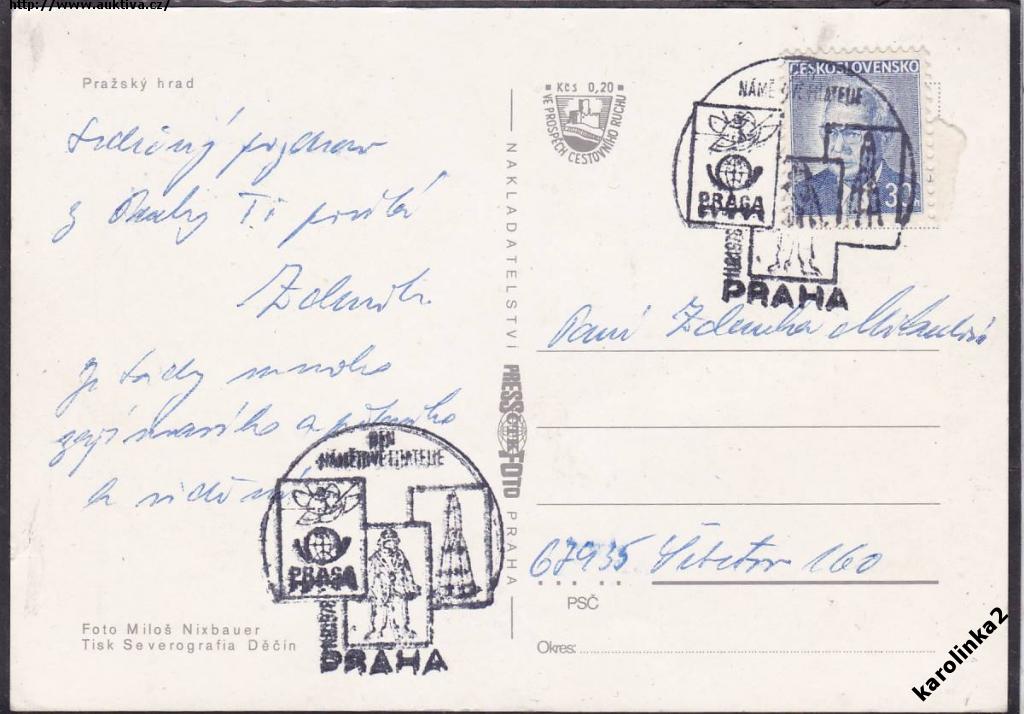 http://www.auktiva.cz/
Pražský hrad
Srdečný pozdrav
z Prahy Ti posílá
Zdeněk
Je tady mnoho
zajímavého a pěkného
a
Foto Miloš Nixbauer
Tisk Severografia Děčín
DEN
NÁMĚTOVÉ FILATELIE
PRAGA
PRAHA
NAKLADATELSTVÍ PRESSFOTO PRAHA
Kčs 0,20
VE PROSPĚCH CESTOVNÍHO RUCHU
ČESKOSLOVENSKO
30h
NÁMĚTOVÉ FILATELIE
PRAGA
PRAHA
Paní Zdeňka
67935 160
PSČ
Okres:
karolinka2